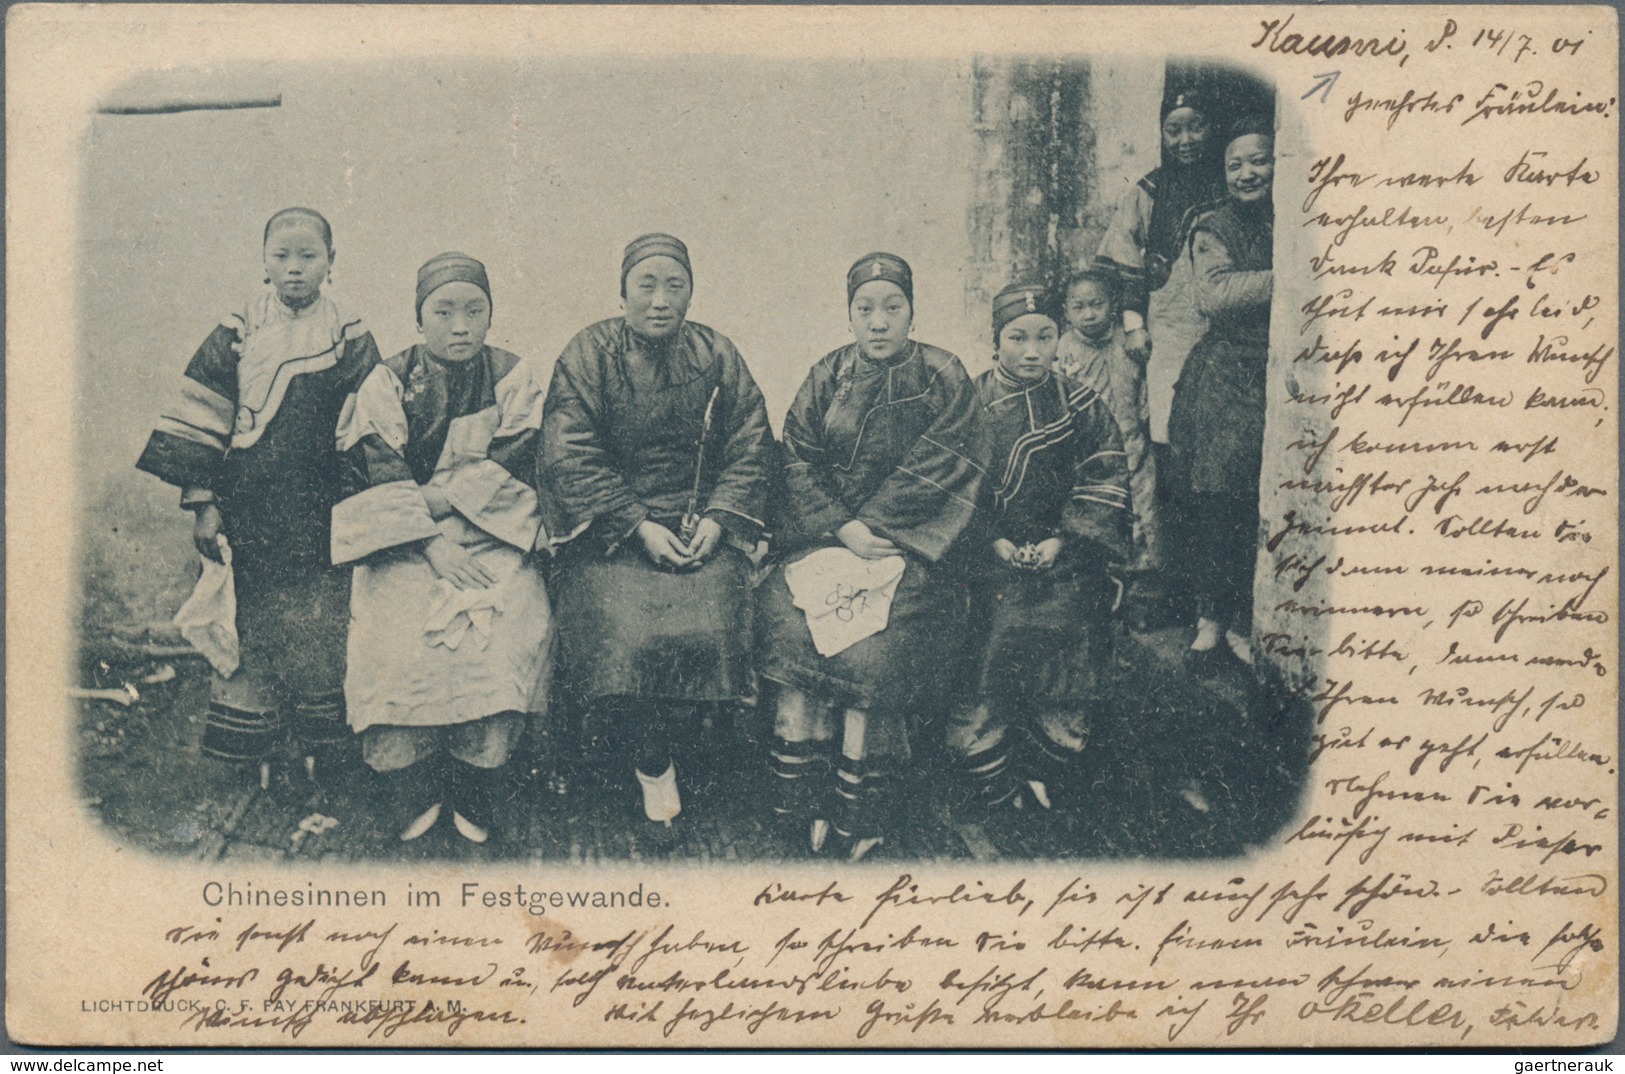 Kaumi, d. 14/7. 01
geehrtes Fräulein!
Ihre werte Karte
erhalten, besten
Dank dafür. - Es
thut mir sehr leid,
dass ich Ihren Wunsch
nicht erfüllen kann,
ich komme erst
nächstes Jahr nach der
Heimat. Sollten Sie
sich dann meiner noch
erinnern, so schreiben
Sie bitte, dann werde
ich Ihren Wunsch, so
gut es geht, erfüllen.
Nehmen Sie vor-
läufig mit dieser
Karte fürlieb, sie ist auch sehr schön. - Sollten
Sie sonst noch einen Wunsch haben, so schreiben Sie bitte. Einem Fräulein, die solche
schönes Gedicht kann u. solch Vaterlandsliebe besitzt, kann man schwer einen
Wunsch abschlagen. Mit herzlichem Gruße verbleibe ich Ihr O Keller,
837
Chinesinnen im Festgewande.
LICHTDRUCK, C. F. FAY FRANKFURT A. M.
gaertnerauk